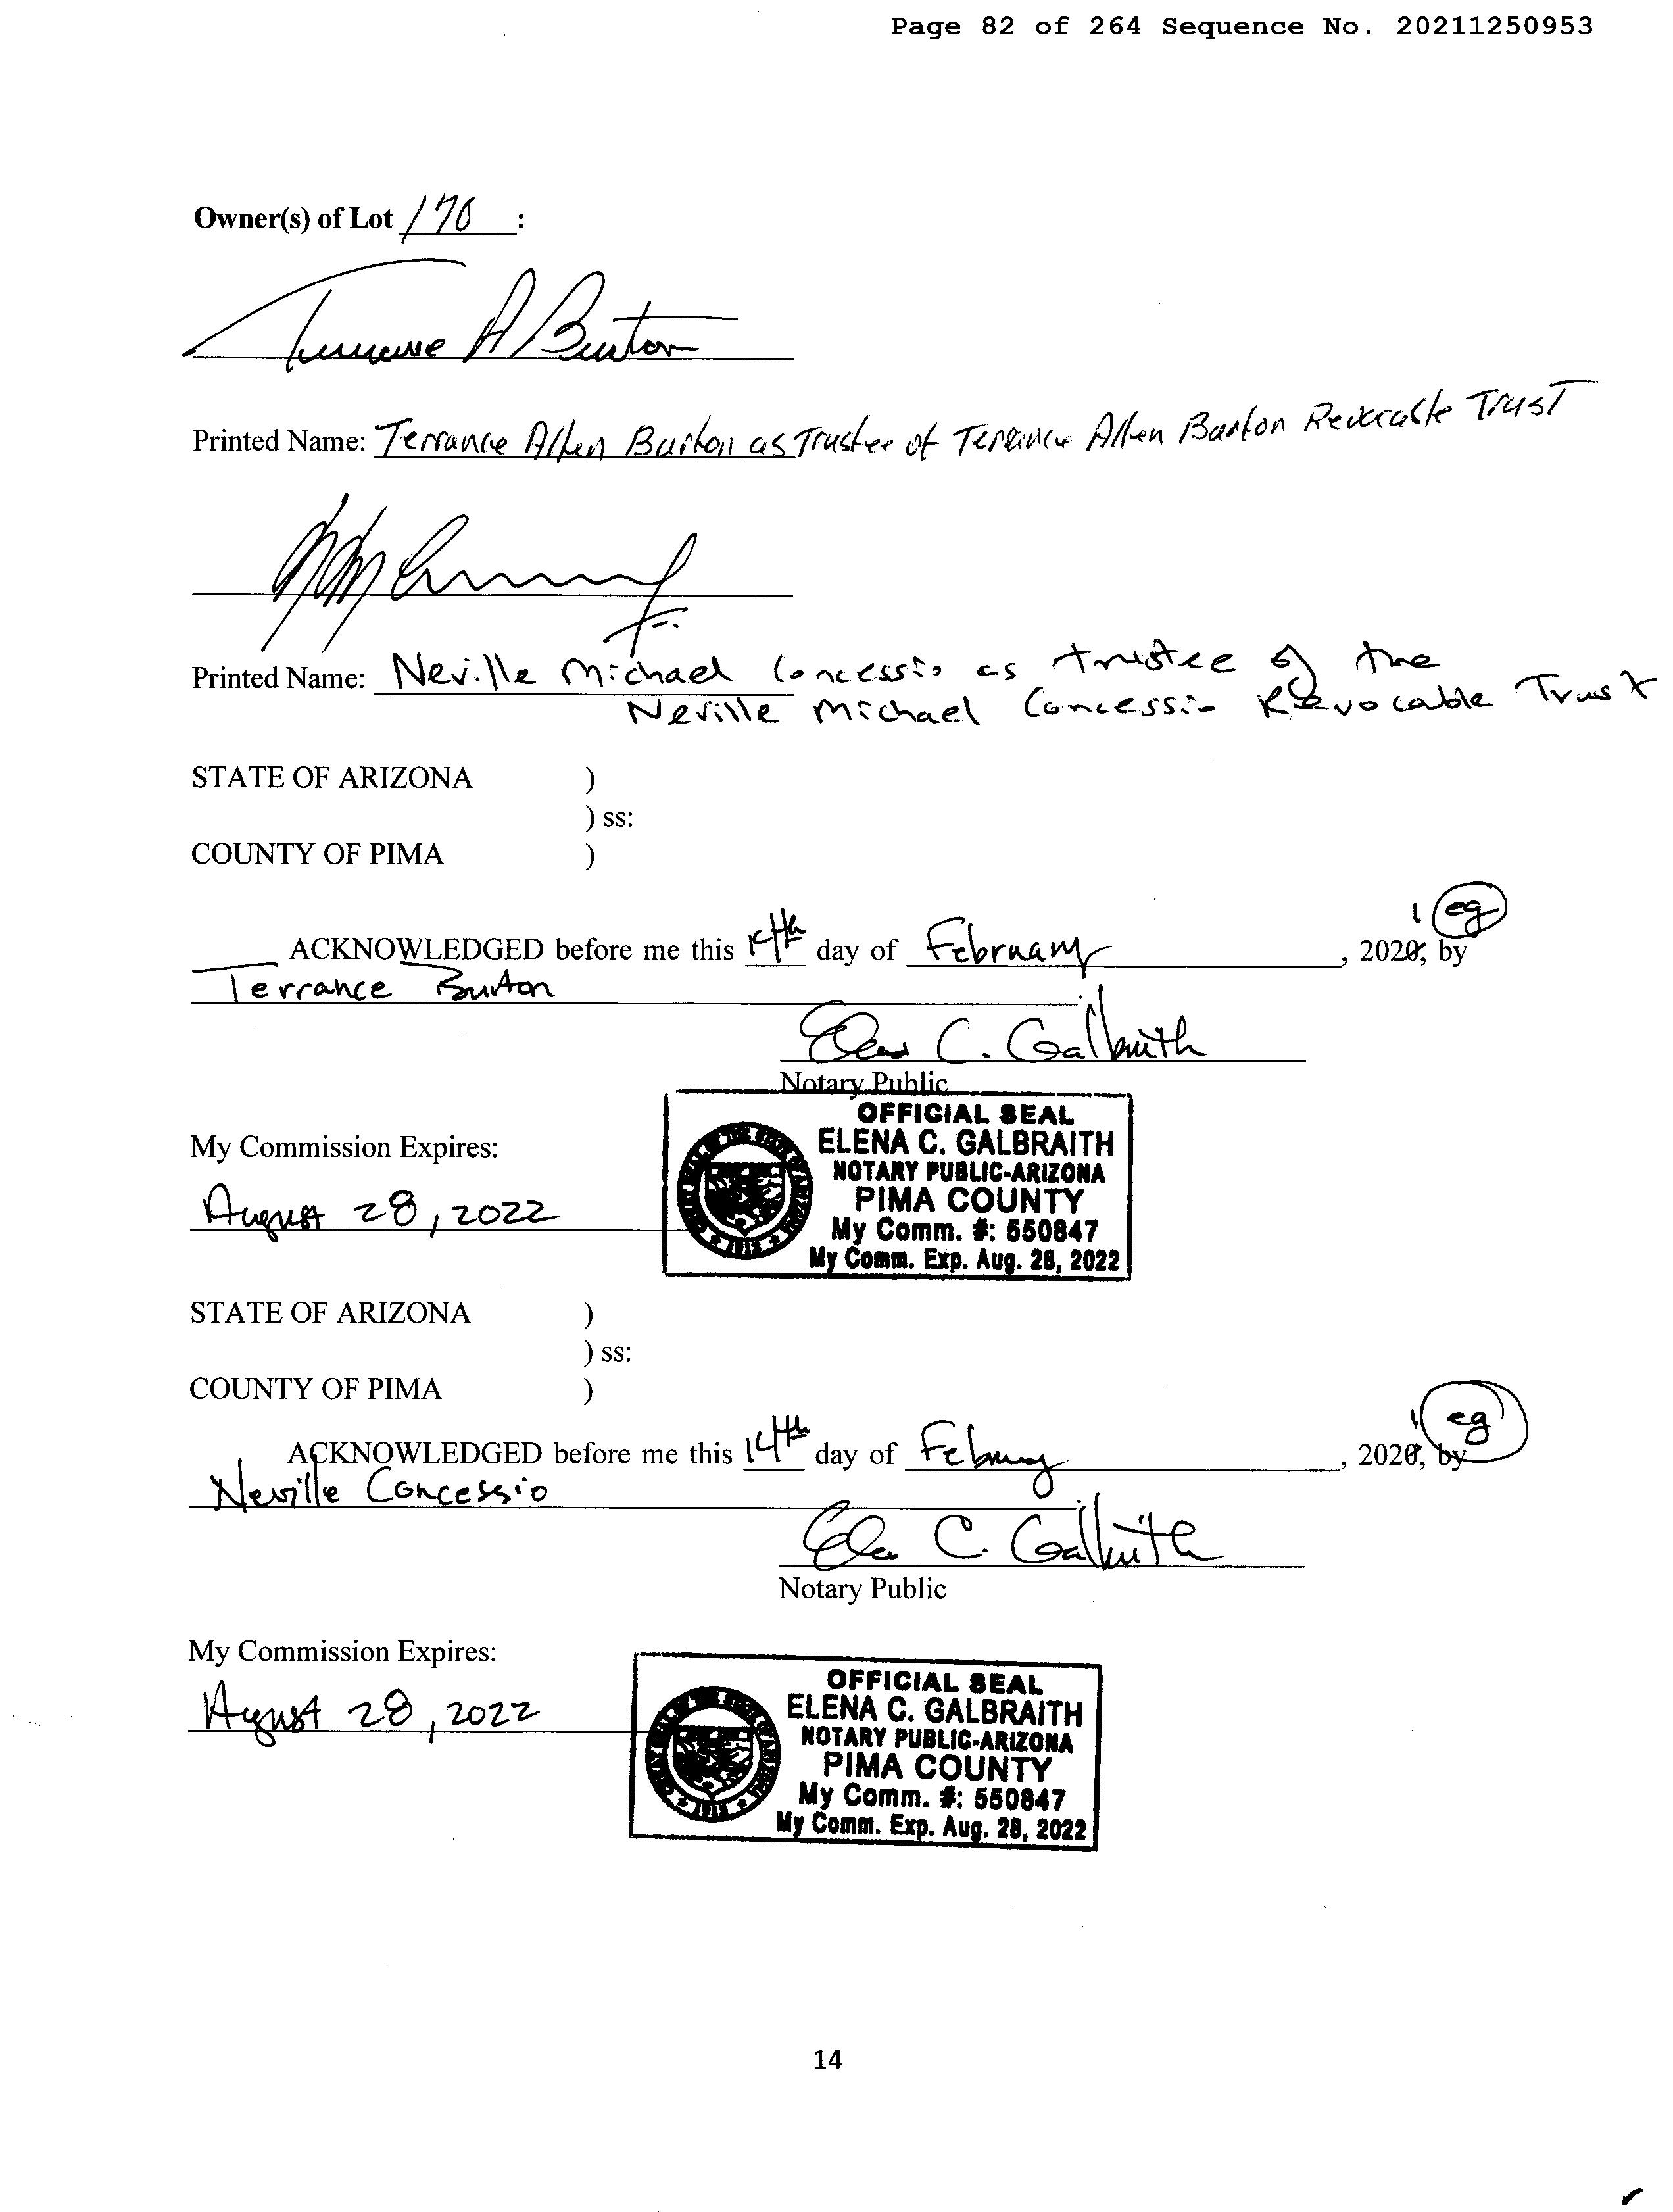 Page 82 of 264 Sequence No. 20211250953
Owner(s) of Lot 170 :
Terrance A Burton
Printed Name: Terrance Allen Burton as Trustee of Terrance Allen Burton Revocable Trust
Printed Name: Neville Michael Concessio as trustee of the
Neville Michael Concessio Revocable Trust
STATE OF ARIZONA )
) ss:
COUNTY OF PIMA )
1 eg
ACKNOWLEDGED before me this 14th day of February, 2020, by
Terrance Burton
Elena C. Galbraith
Notary Public
OFFICIAL SEAL
ELENA C. GALBRAITH
NOTARY PUBLIC-ARIZONA
PIMA COUNTY
My Comm. #: 550847
My Comm. Exp. Aug. 28, 2022
GREAT SEAL OF THE STATE OF ARIZONA
1912
My Commission Expires:
August 28, 2022
STATE OF ARIZONA )
) ss:
COUNTY OF PIMA )
1 eg
ACKNOWLEDGED before me this 14th day of February, 2020, by
Neville Concessio
Elena C. Galbraith
Notary Public
My Commission Expires:
August 28, 2022
OFFICIAL SEAL
ELENA C. GALBRAITH
NOTARY PUBLIC-ARIZONA
PIMA COUNTY
My Comm. #: 550847
My Comm. Exp. Aug. 28, 2022
GREAT SEAL OF THE STATE OF ARIZONA
1912
14